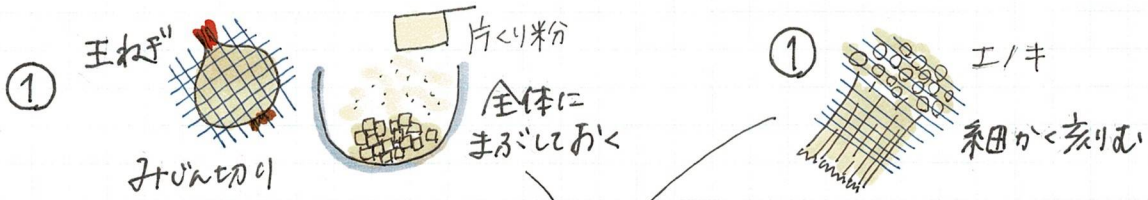 ①
玉ねぎ
みじん切り
片くり粉
全体に
まぶしておく
①
エノキ
細かく刻む